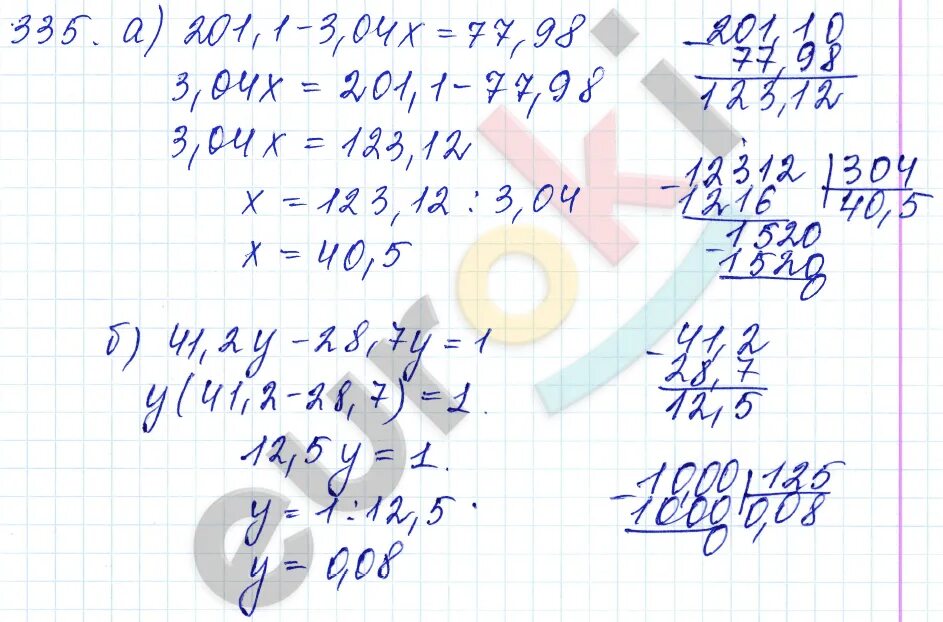 335. а) 201,1-3,04x=77,98
3,04x=201,1-77,98
3,04x=123,12
x=123,12:3,04
x=40,5
-201,10
77,98
123,12
-12312 304
1216 40,5
-1520
1520
0
б) 41,2y-28,7y=1
y(41,2-28,7)=1.
12,5y=1.
y=1:12,5.
y=0,08
-41,2
28,7
12,5
-1000 125
1000 0,08
0
euroki